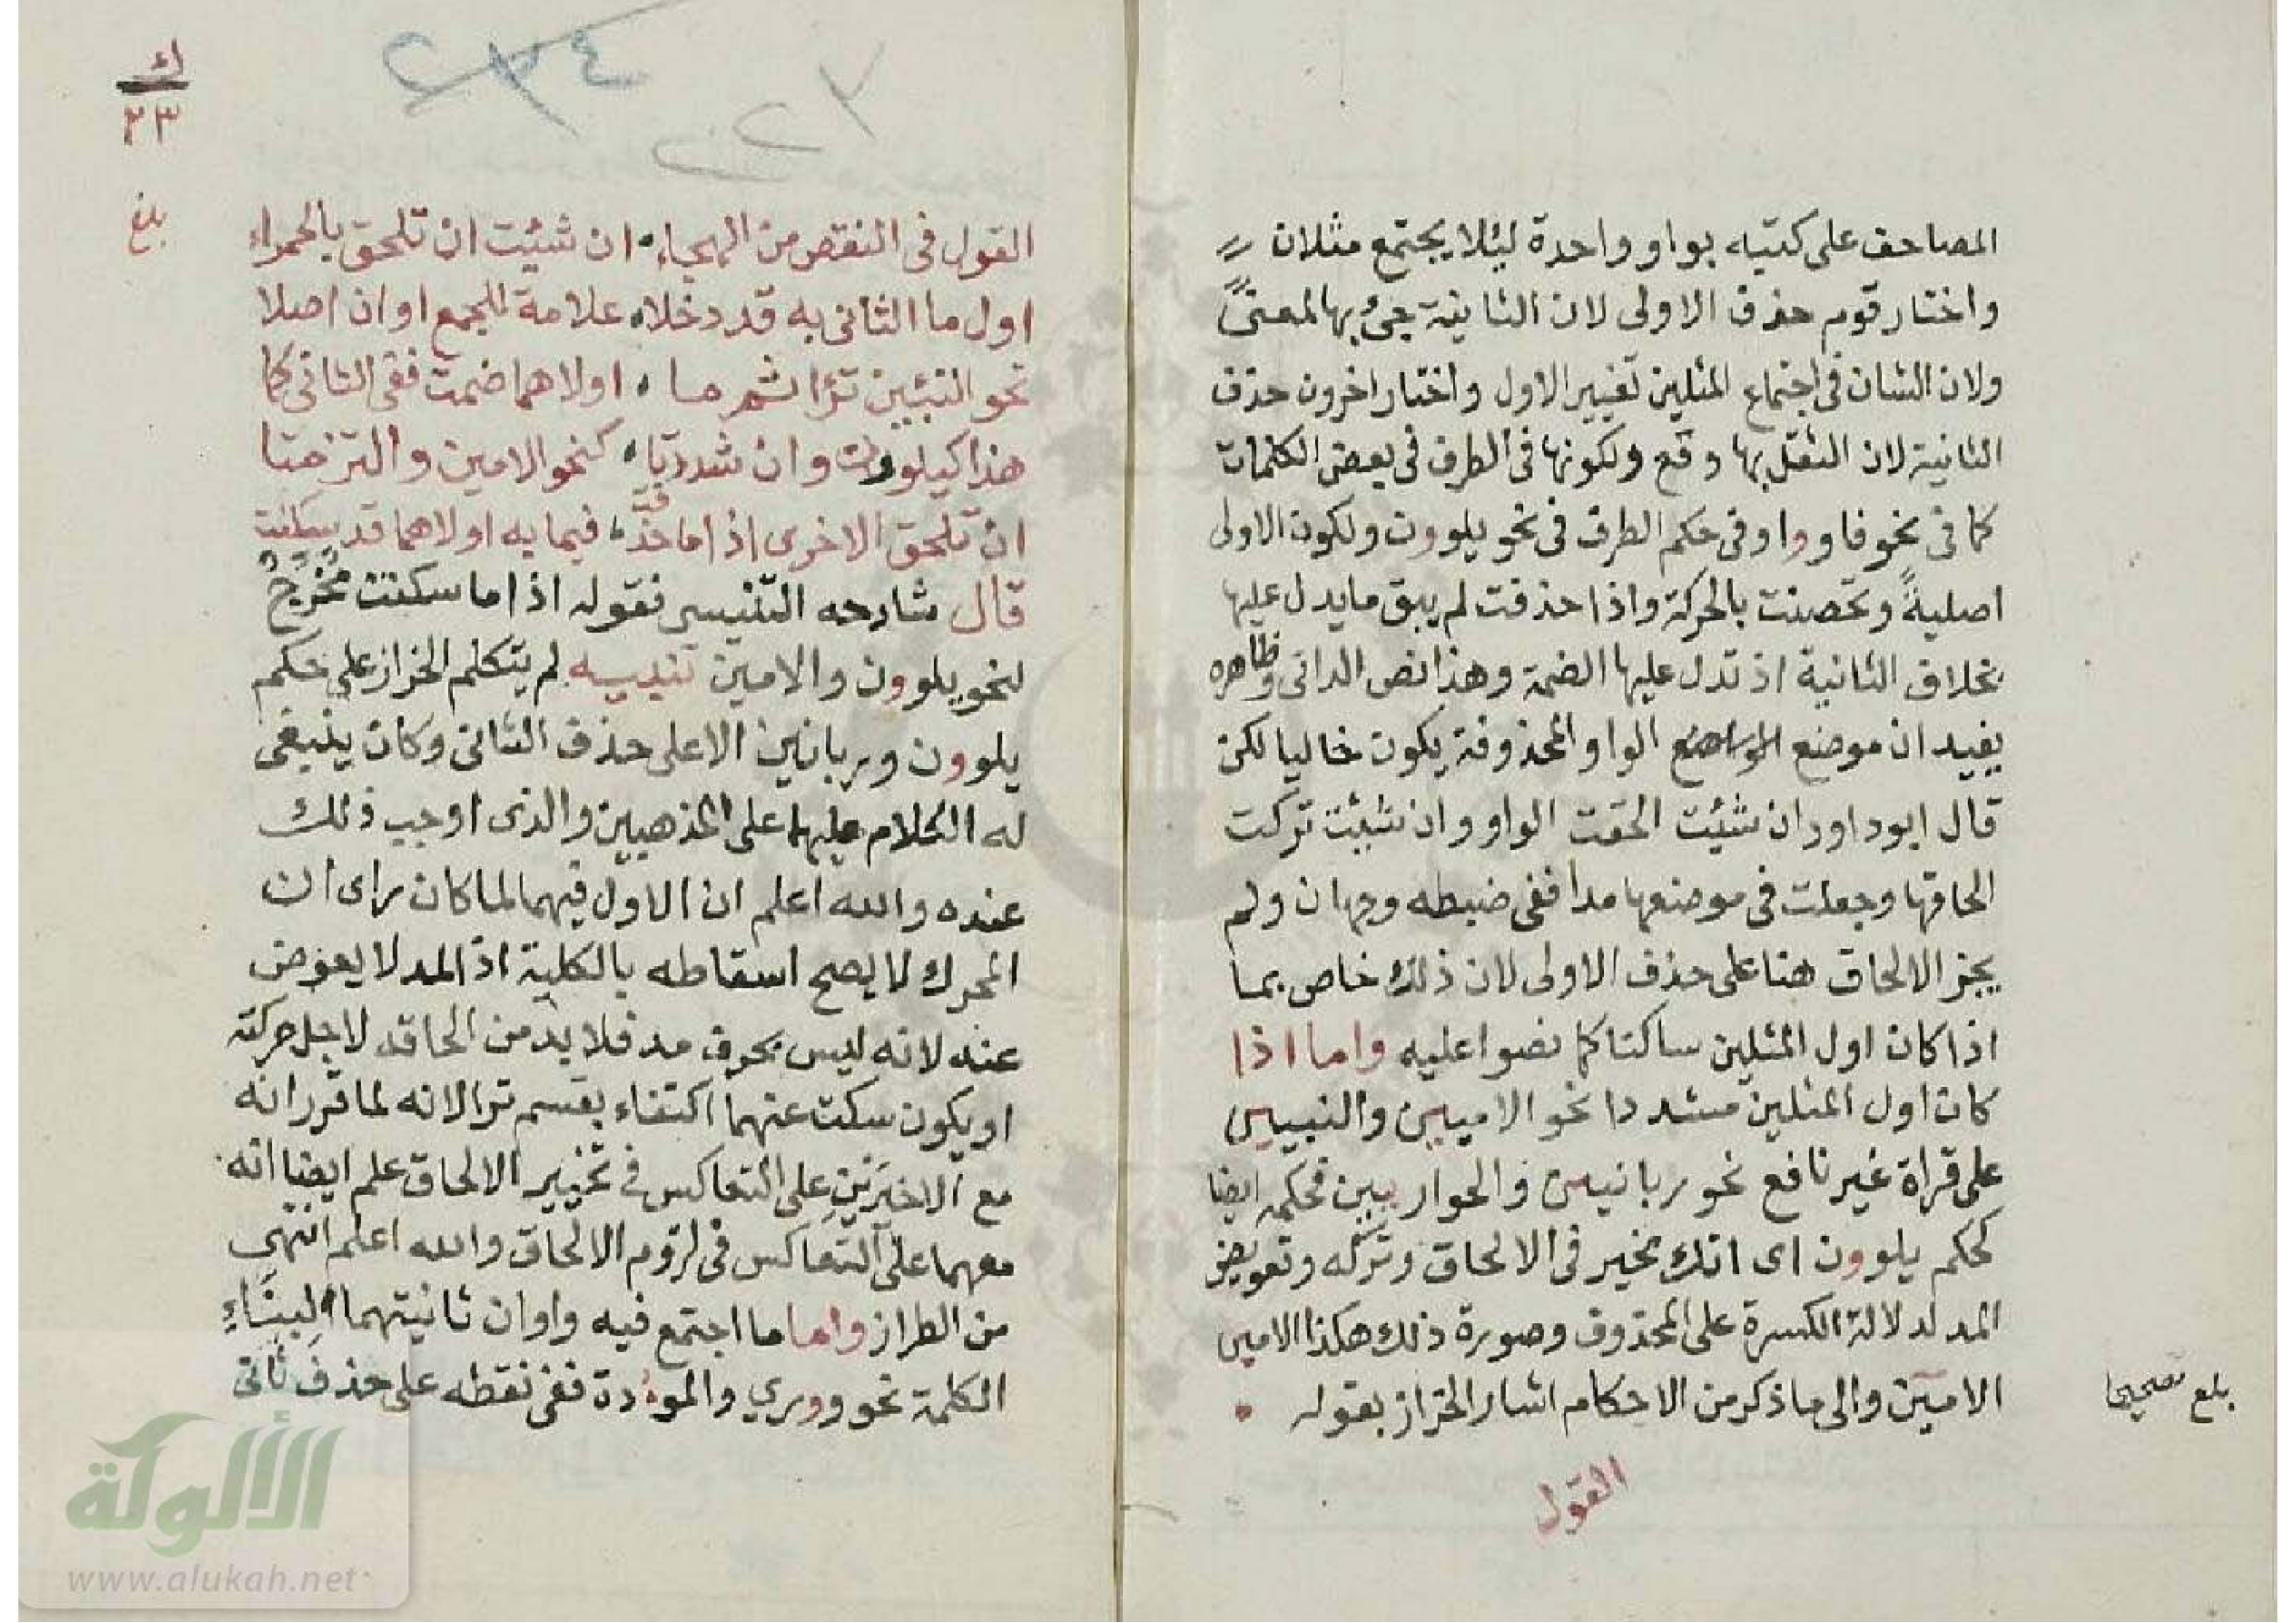 المصاحف على كتبه بواو واحدة ليئلا يجتمع مثلان
واختار قوم حذف الاولى لان الثانية جئ بها لمعنى
ولان الشان في اجتماع المثلين تغيير الاول واختار اخرون حذف
الثانية لان الثقل بها وقع ولكونها في الطرف في بعض الكلمات
كما في نحو فاووا وفي حكم الطرف في نحو يلوون ولكون الاولى
اصلية وتحصنت بالحركة واذا حذفت لم يبق ما يدل عليها
بخلاف الثانية اذ تدل عليها الضمة وهذا نص الداني وظاهره
يفيد ان موضع الواو المحذوفة يكون خاليا لكن
قال ابو داود ان شيئت الحقت الواو وان شيئت تركت
الحاقها وجعلت في موضعها مدا ففي ضبطه وجهان ولم
يجز الالحاق هنا على حذف الاولى لان ذلك خاص بما
اذا كان اول المثلين ساكنا كما نصوا عليه واما اذا
كان اول المثلين مشددا نحو الاميين والنبيين
على قراة غير نافع نحو ربانيين والحواريين فحكمه ايضا
كحكم يلوون اى انك مخير في الالحاق وتركه وتعويض
المد لدلالة الكسرة على المحذوف وصورة ذلك هكذا الامين
الاميين والى ما ذكر من الاحكام اشار الخراز بقوله
بلغ تصحيحا
القول
٢٣
بلغ
القول في النقص من الهجاء ان شيئت ان تلحق بالحمراء
اول ما الثاني به قد دخلا علامة للجمع او ان اصلا
نحو النبيئين تراا ثم ما اولاهما ضمت ففي الثاني كما
هذا كيلوون وان شددتا كنحو الاميين والترختا
ان تلحق الاخرى اذا ما حذفت فيما به اولاهما قد سكنت
قال شارحه التنيسي فقوله اذا ما سكنت مخرج
لنحو يلوون والاميين تنبيه لم يتكلم الخراز على حكم
يلوون وربانين الا على حذف الثاني وكان ينبغي
له الكلام عليهما على المذهبين والذى اوجب ذلك
عنده والله اعلم ان الاول فيهما لما كان راى ان
المحرك لا يصح اسقاطه بالكلية اذ المد لا يعوض
عنه لانه ليس بحرف مد فلا بد من الحاقه لاجل حركته
او يكون سكت عنهما اكتفاء بقسم ترا لانه لما قرر انه
مع الاخيرين على التعاكس في تخيير الالحاق علم ايضا انه
معهما على التعاكس في لزوم الالحاق والله اعلم انتهى
من الطراز واما ما اجتمع فيه واوان ثانيتهما لبناء
الكلمة نحو ووري والموءدة ففي نقطه على حذف ثاني
الألوكة
www.alukah.net